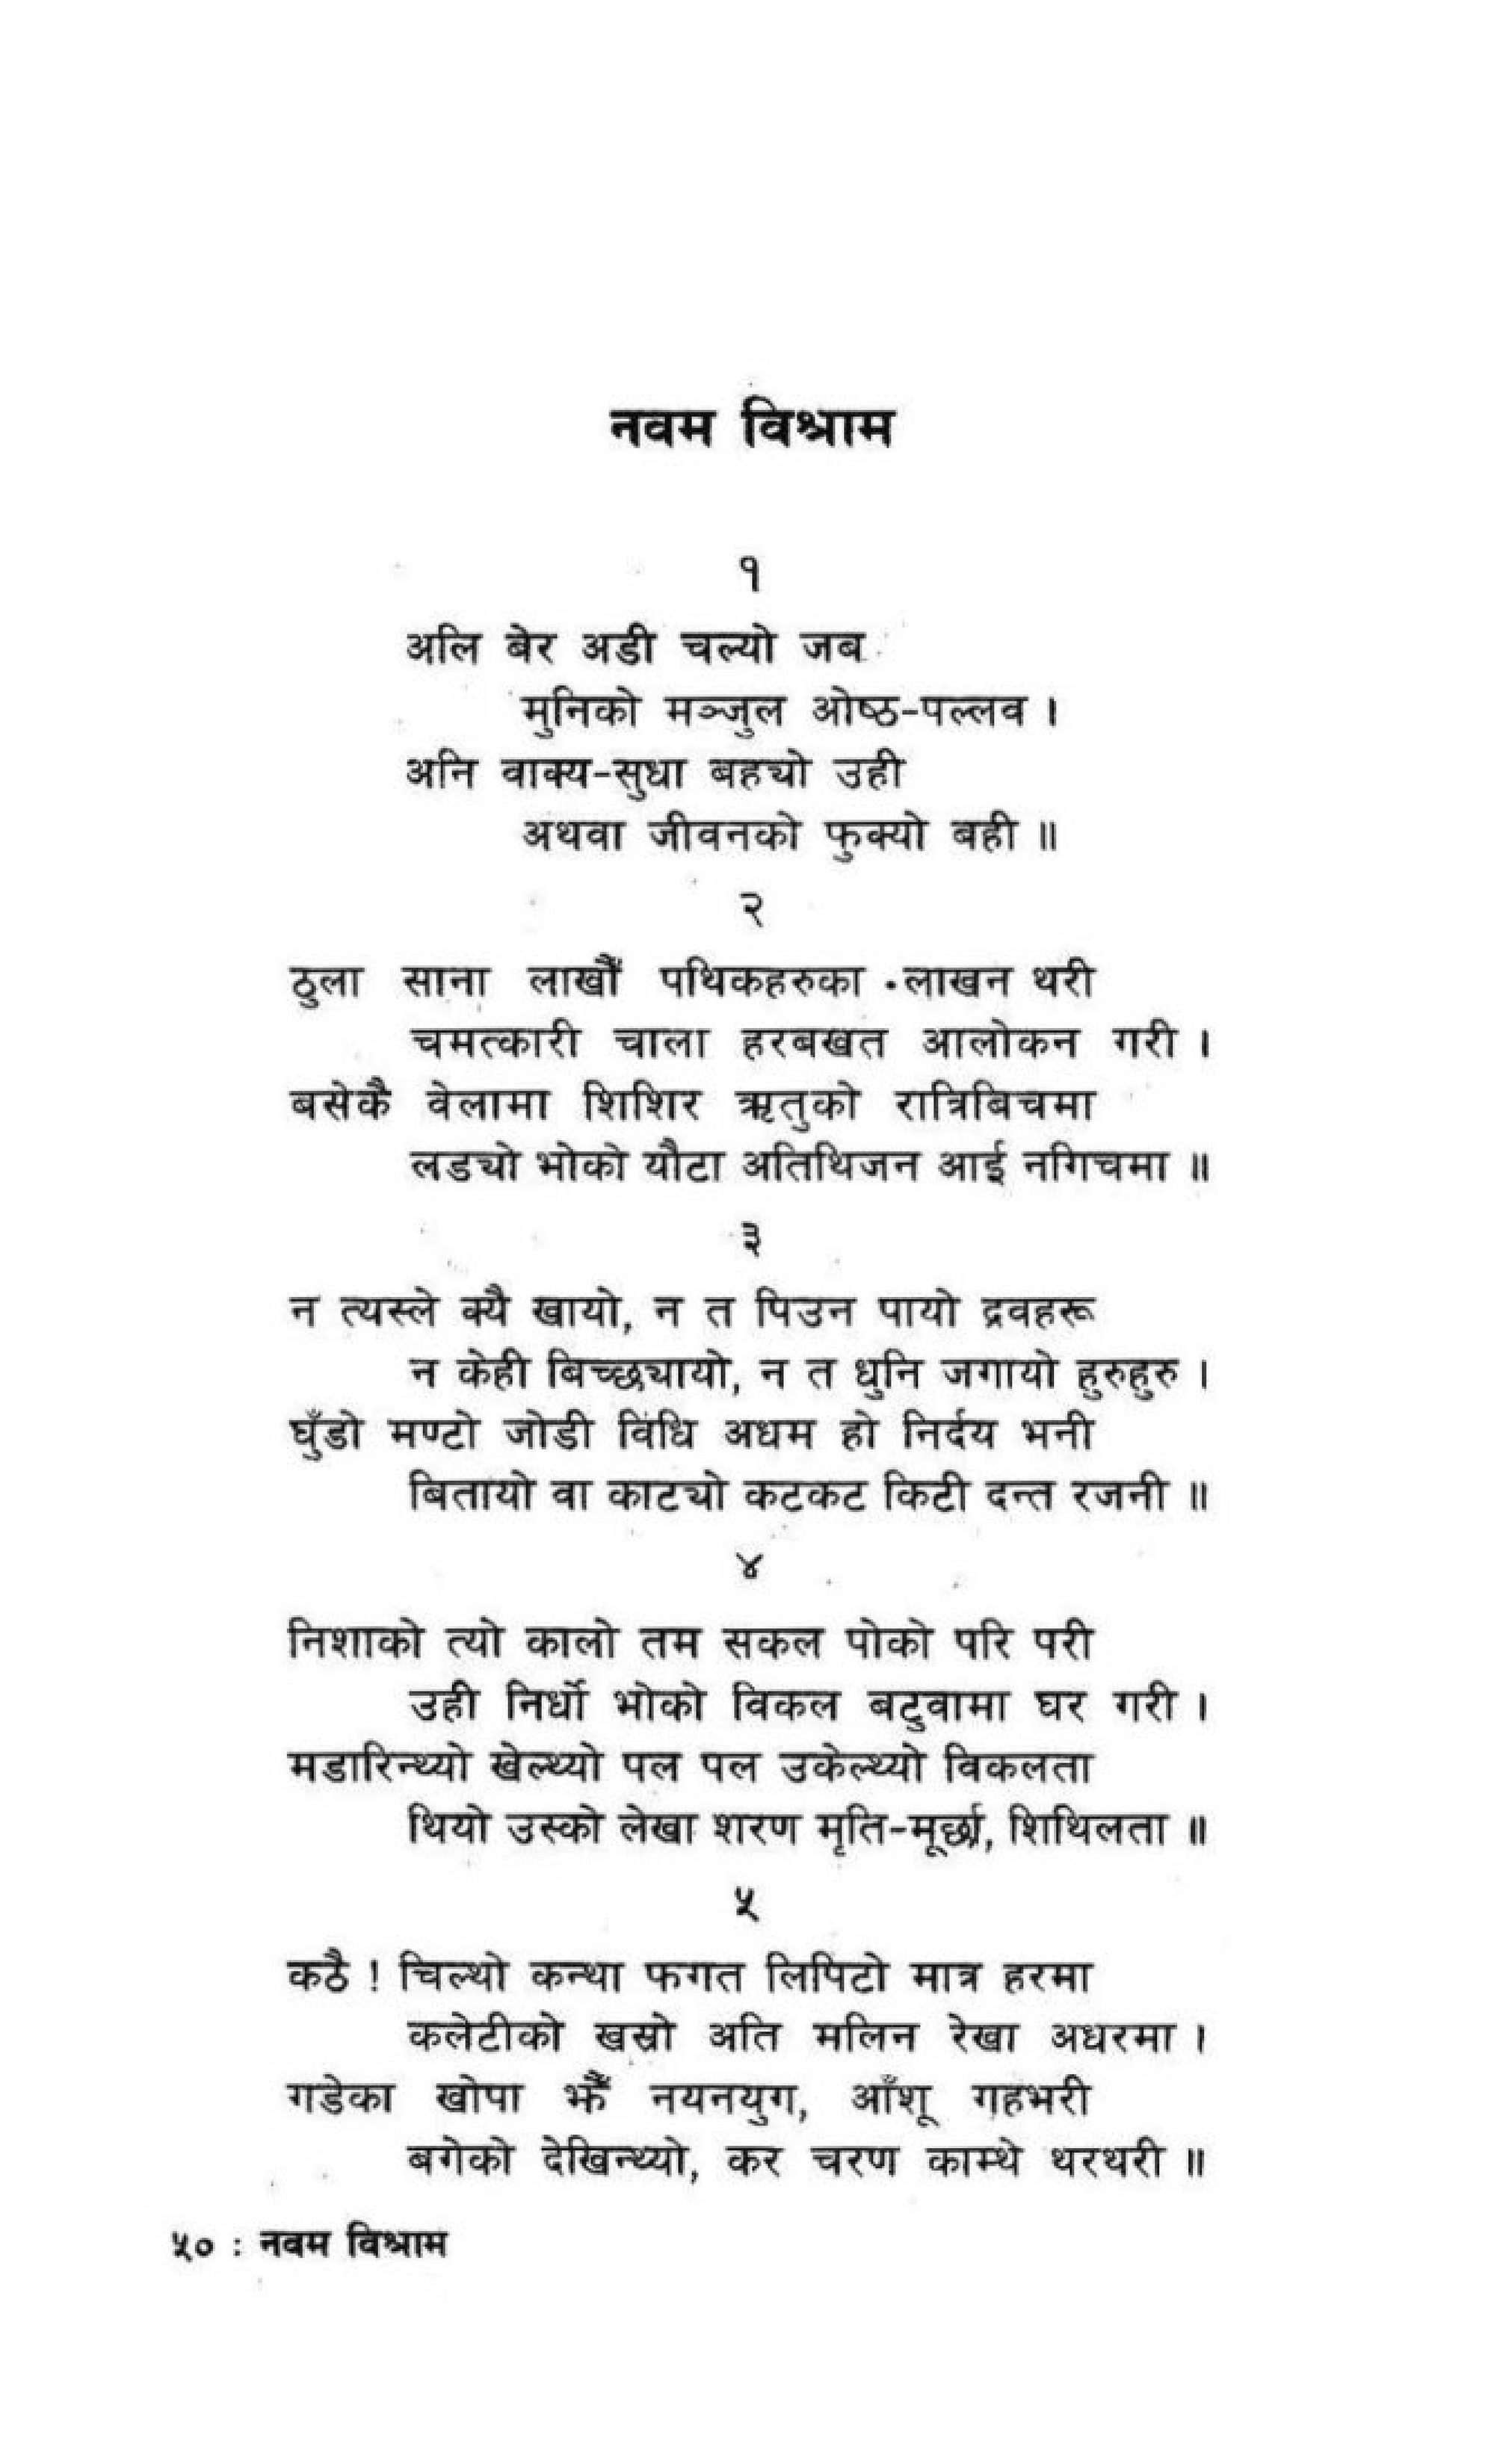 नवम विश्राम
१
अलि बेर अडी चल्यो जब
मुनिको मञ्जुल ओष्ठ-पल्लव ।
अनि वाक्य-सुधा बहच्यो उही
अथवा जीवनको फुक्यो बही ॥
२
ठुला साना लाखौँ पथिकहरुका लाखन थरी
चमत्कारी चाला हरबखत आलोकन गरी ।
बसेकै वेलामा शिशिर ऋतुको रात्रिबिचमा
लड्यो भोको यौटा अतिथिजन आई नगिचमा ॥
३
न त्यस्ले क्यै खायो, न त पिउन पायो द्रवहरू
न केही बिच्छ्यायो, न त धुनि जगायो हुरुहुरु ।
घुँडो मण्टो जोडी विधि अधम हो निर्दय भनी
बितायो वा काट्यो कटकट किटी दन्त रजनी ॥
४
निशाको त्यो कालो तम सकल पोको परि परी
उही निर्धो भोको विकल बटुवामा घर गरी ।
मडारिन्थ्यो खेल्थ्यो पल पल उकेल्थ्यो विकलता
थियो उस्को लेखा शरण मृति-मूर्छा, शिथिलता ॥
५
कठै ! चिल्थो कन्था फगत लिपिटो मात्र हरमा
कलेटीको खस्रो अति मलिन रेखा अधरमा ।
गडेका खोपा झैँ नयनयुग, आँशू गहभरी
बगेको देखिन्थ्यो, कर चरण काम्थे थरथरी ॥
५० : नवम विश्राम